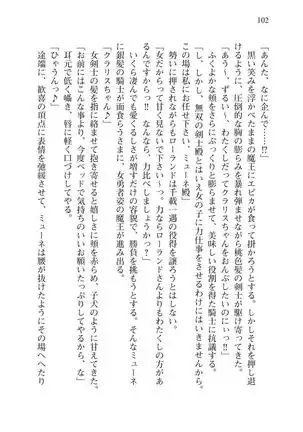 102
「あんた、なに企んで……⁉」
黒い笑みを浮べたままの魔王にエピカが食って掛かろうとする。しかしそれを押し退
けるように、圧倒的な胸の膨らみを暴れ弾ませながら桃色髪の剣士が駆け寄ってきた。
「あうー、ずるいい。わたくしだってクラリスちゃんをおんぶしたいのにぃっ‼」
ふくよかな頬をさらにぷっくりと膨らませて、美味しい役割を得た騎士に抗議する。
「し、しかし、無双の剣士殿とはいえ女の子に力仕事をさせるわけにはいきませんから。
この場は私にお任せ下さい、ミューネ殿」
勢いに押されながらもローランドは千載一遇の役得を譲ろうとはしない。
「女だからって甘く見ないで下さい〜っ。力ならローランドさんよりもわたくしの方があ
るんですから‼　なんなら、力比べしましょうかっ？」
いくら凄んでも愛くるしさだけの容貌で、勝負を挑もうとする。そんなミューネ
に銀髪の騎士が面食らうさなか、女勇者姿の魔王が進み出る。
「クラリスちゃん♪」
女剣士の髪を指に絡ませて抱き寄せると嬉しさに頬を赤らめ、子犬のように甘えてきた。
「お前にはこんな事より、今度ベッドで気持ちのいいお願いたっぷりしてやるから、な」
耳元で低く囁き、唇に軽く口づけてやる。
「ひゃうんっ♥」
途端に、歓喜の頂点に表情を弛緩させ、ミューネは腰が抜けたようにその場へへたり